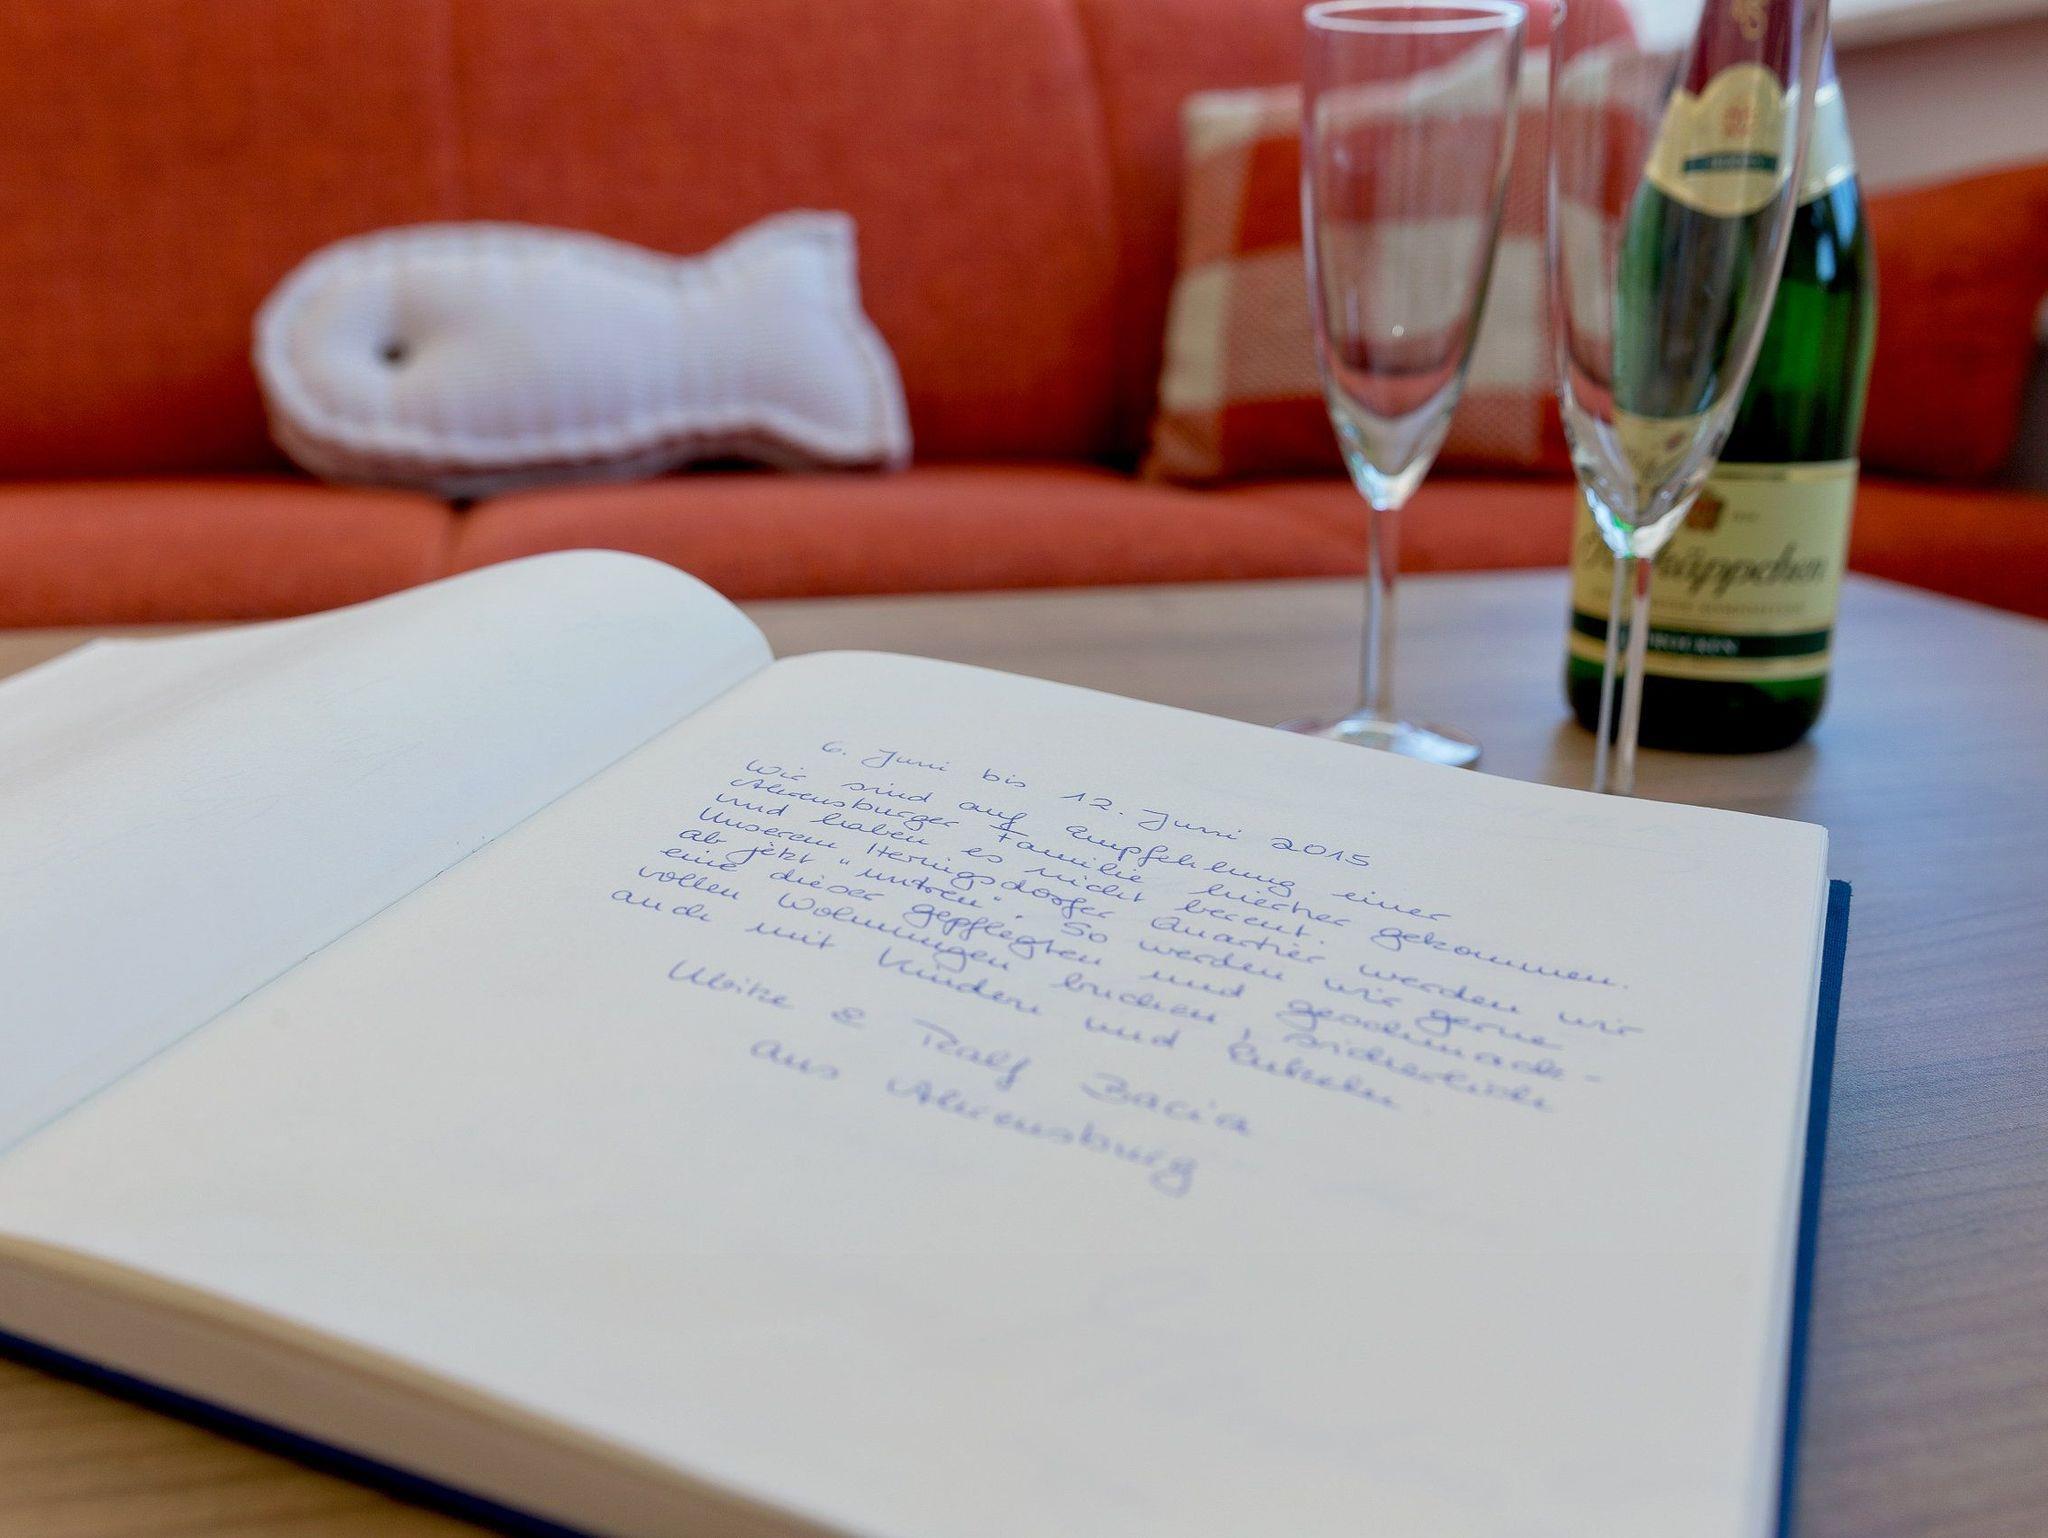 6. Juni bis 12. Juni 2015
Wir sind auf Empfehlung einer
Ahrensburger Familie hierher gekommen
und haben es nicht bereut.
Unserem Heringsdorfer Quartier werden wir
ab jetzt "untreu". So werden wir gerne
eine dieser gepflegten und geschmack-
vollen Wohnungen buchen, sicherlich
auch mit Kindern und Enkeln
& Ralf Bacia
aus Ahrensburg
Rotkäppchen
TROCKEN